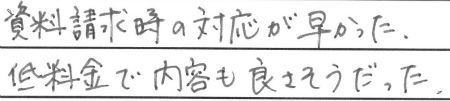 資料請求時の対応が早かった.
低料金で内容も良さそうだった.